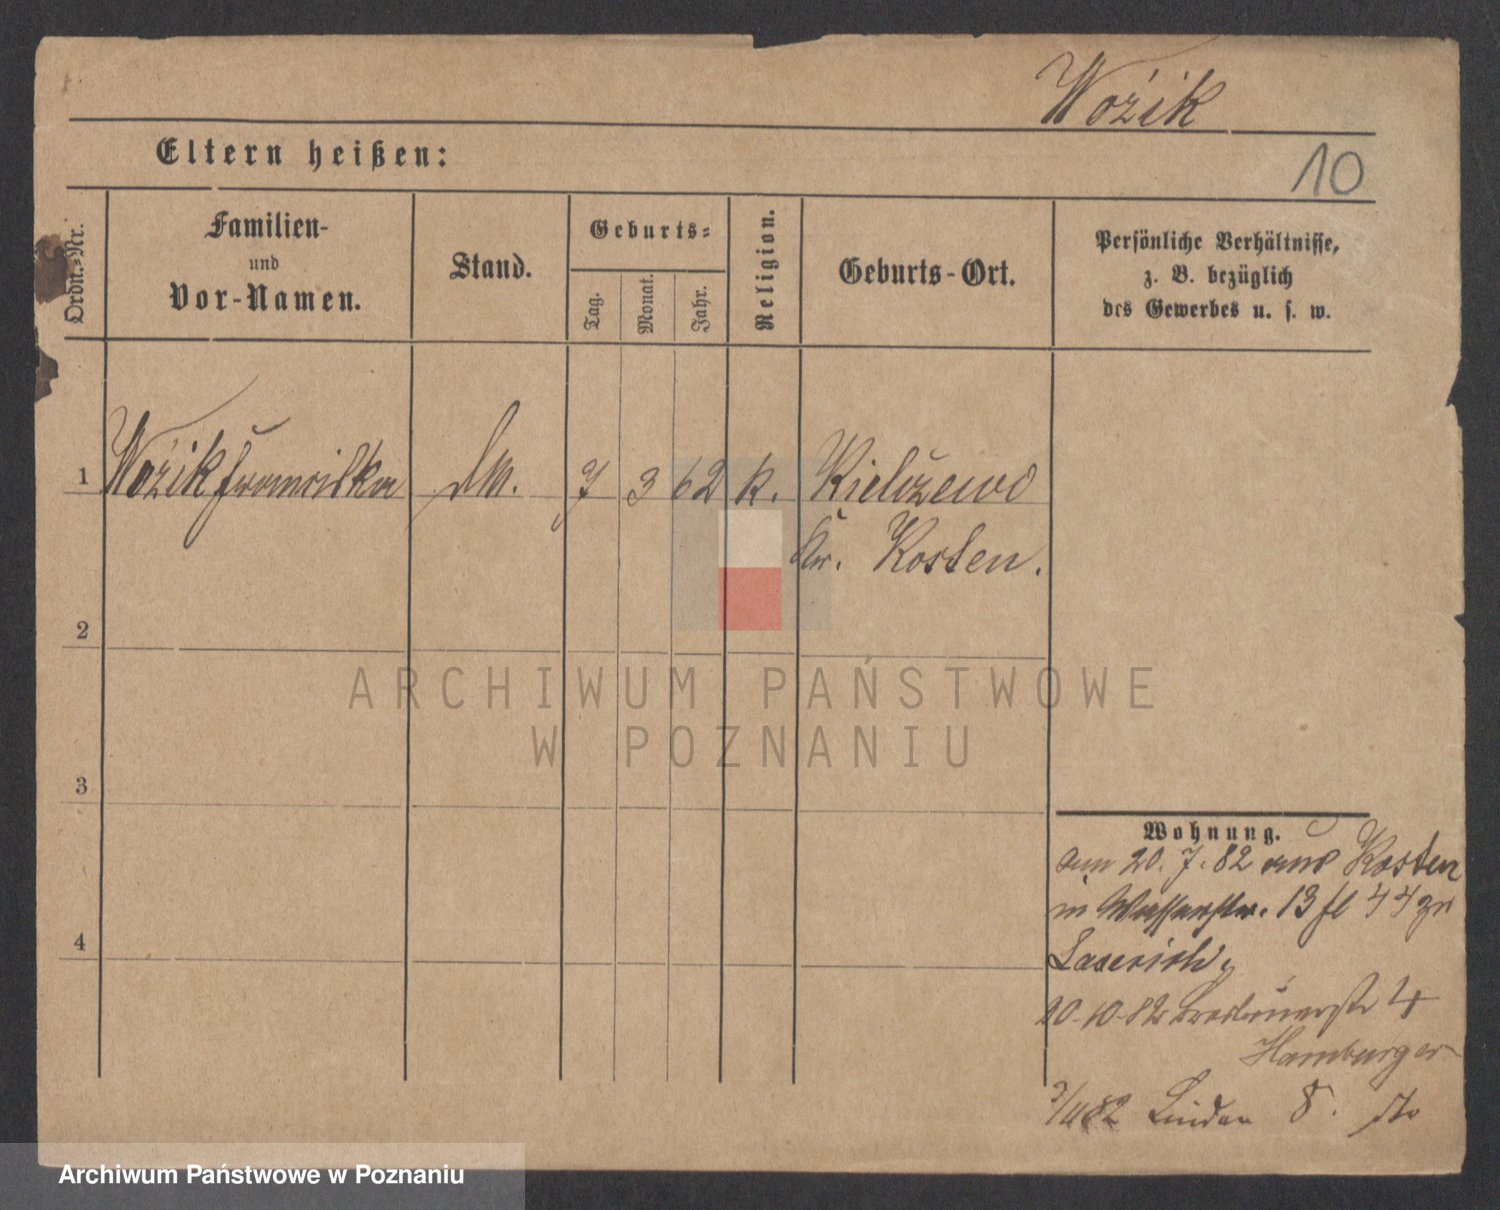 Woźik
Eltern heißen:
10
Ordn.-Nr.
Familien-
und
Vor-Namen.
Stand.
Geburts-
Tag.
Monat.
Jahr.
Religion.
Geburts-Ort.
Persönliche Verhältnisse,
z. B. bezüglich
des Gewerbes u. s. w.
1 Woźik Franziska 7 3 62 k. Kielczewo
Kr. Kosten.
2
3
4
Wohnung.
am 20.7.82 aus Kosten
in Wasserstr. 13 bl 44 zu
20-10-82 Breslauerstr 4
Hamburger
2/11 82 Linden 8.
ARCHIWUM PAŃSTWOWE
W POZNANIU
Archiwum Państwowe w Poznaniu